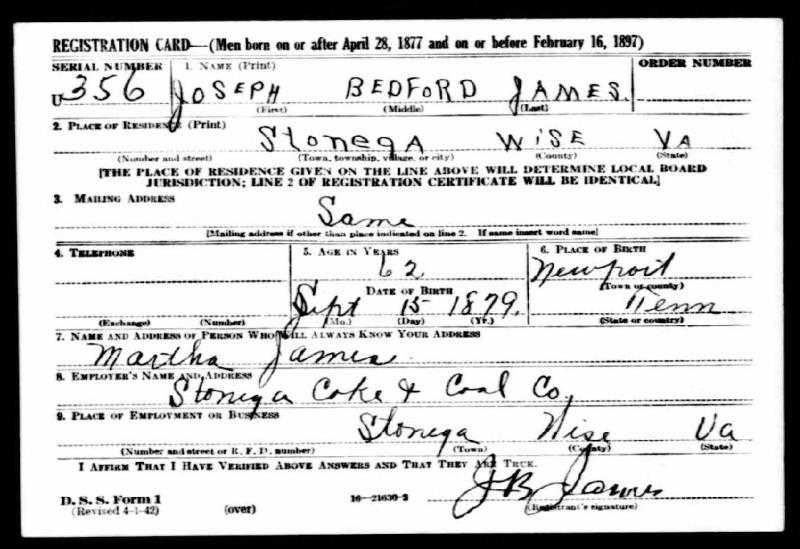 REGISTRATION CARD—(Men born on or after April 28, 1877 and on or before February 16, 1897)
SERIAL NUMBER 1. NAME (Print) ORDER NUMBER
U 356 JOSEPH BEDFORD JAMES.
(First) (Middle) (Last)
2. PLACE OF RESIDENCE (Print)
Stonega Wise Va
(Number and street) (Town, township, village, or city) (County) (State)
[THE PLACE OF RESIDENCE GIVEN ON THE LINE ABOVE WILL DETERMINE LOCAL BOARD
JURISDICTION; LINE 2 OF REGISTRATION CERTIFICATE WILL BE IDENTICAL]
3. MAILING ADDRESS
Same
[Mailing address if other than place indicated on line 2. If same insert word same]
4. TELEPHONE 5. AGE IN YEARS 6. PLACE OF BIRTH
62 Newport
DATE OF BIRTH (Town or county)
Sept 15 1879. Tenn
(Exchange) (Number) (Mo.) (Day) (Yr.) (State or country)
7. NAME AND ADDRESS OF PERSON WHO WILL ALWAYS KNOW YOUR ADDRESS
Martha James
8. EMPLOYER'S NAME AND ADDRESS
Stonega Coke & Coal Co.
9. PLACE OF EMPLOYMENT OR BUSINESS
Stonega Wise Va
(Number and street or R. F. D. number) (Town) (County) (State)
I AFFIRM THAT I HAVE VERIFIED ABOVE ANSWERS AND THAT THEY ARE TRUE.
J B James
D. S. S. Form 1 16—21630-2 (Registrant's signature)
(Revised 4-1-42) (over)